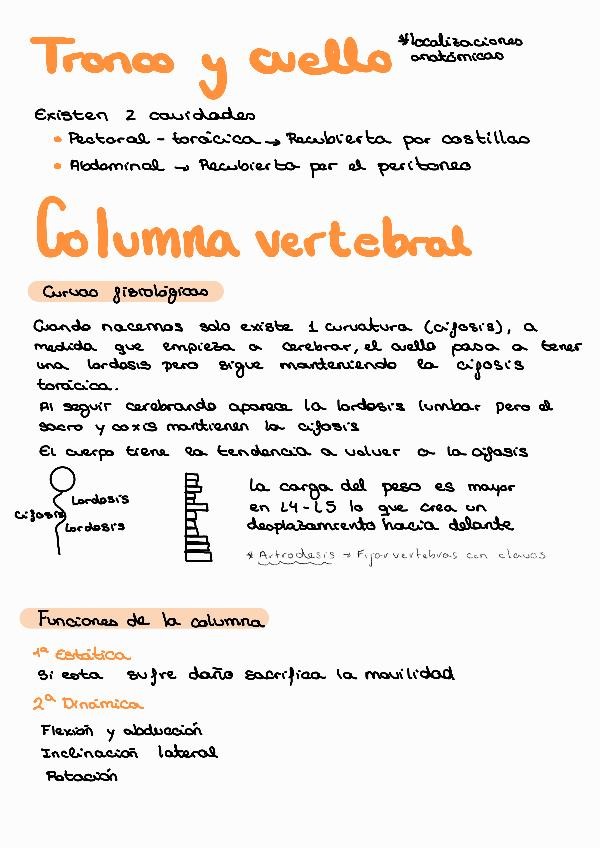 Tronco y cuello
*localizaciones
anatómicas
Existen 2 cavidades
• Pectoral - torácica → Recubierta por costillas
• Abdominal → Recubierta por el peritoneo
Columna vertebral
Curvas fisiológicas
Cuando nacemos solo existe 1 curvatura (cifosis), a
medida que empieza a cerebrar, el cuello pasa a tener
una lordosis pero sigue manteniendo la cifosis
torácica.
Al seguir cerebrando aparece la lordosis lumbar pero el
sacro y coxis mantienen la cifosis
El cuerpo tiene la tendencia a volver a la cifosis
lordosis
cifosis
lordosis
la carga del peso es mayor
en L4-L5 lo que crea un
desplazamiento hacia delante
* Artrodesis → Fijar vertebras con clavos
Funciones de la columna
1ª Estática
si esta sufre daño sacrifica la movilidad
2ª Dinámica
Flexión y abducción
Inclinación lateral
Rotación